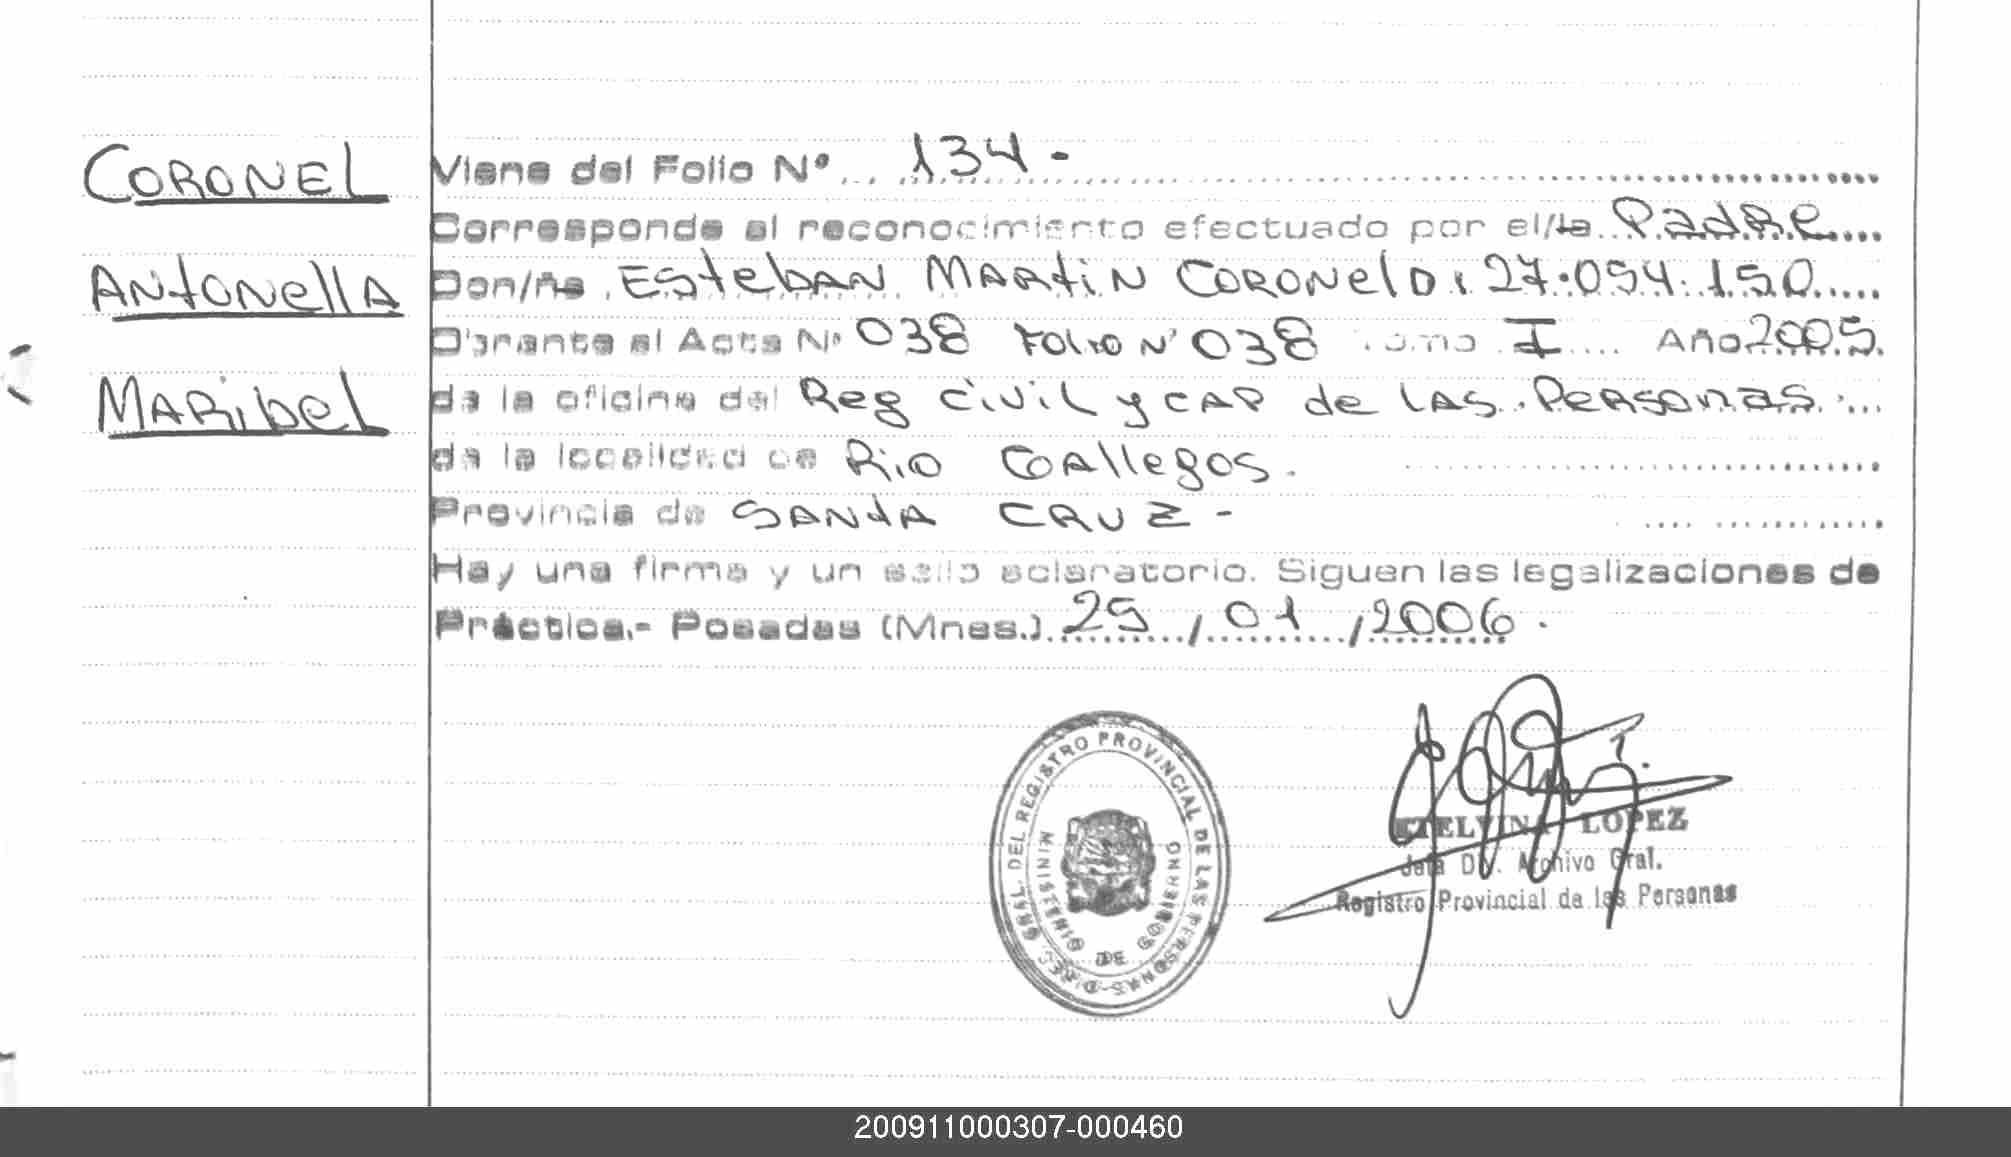 CORONEL
ANtONellA
MARibel
Viene del Folio Nº 134.-
Corresponde al reconocimiento efectuado por el/la Padre
Don/ña Esteban Martin Coronel D: 27.054.150
Obrante al Acta Nº 038 Folio Nº 038 Tomo I Año 2005.
de la oficina del Reg Civil y CAP de LAS Personas
de la localidad de Rio Gallegos.
Provincia de SANtA CRUZ-
Hay una firma y un sello aclaratorio. Siguen las legalizaciones de
Práctica.- Posadas (Mnes.) 25/01/2006.
DIREC. GRAL. DEL REGISTRO PROVINCIAL DE LAS PERSONAS-
MINISTERIO DE GOBIERNO
ETELVINA LOPEZ
Jefa Div. Archivo Gral.
Registro Provincial de las Personas
200911000307-000460